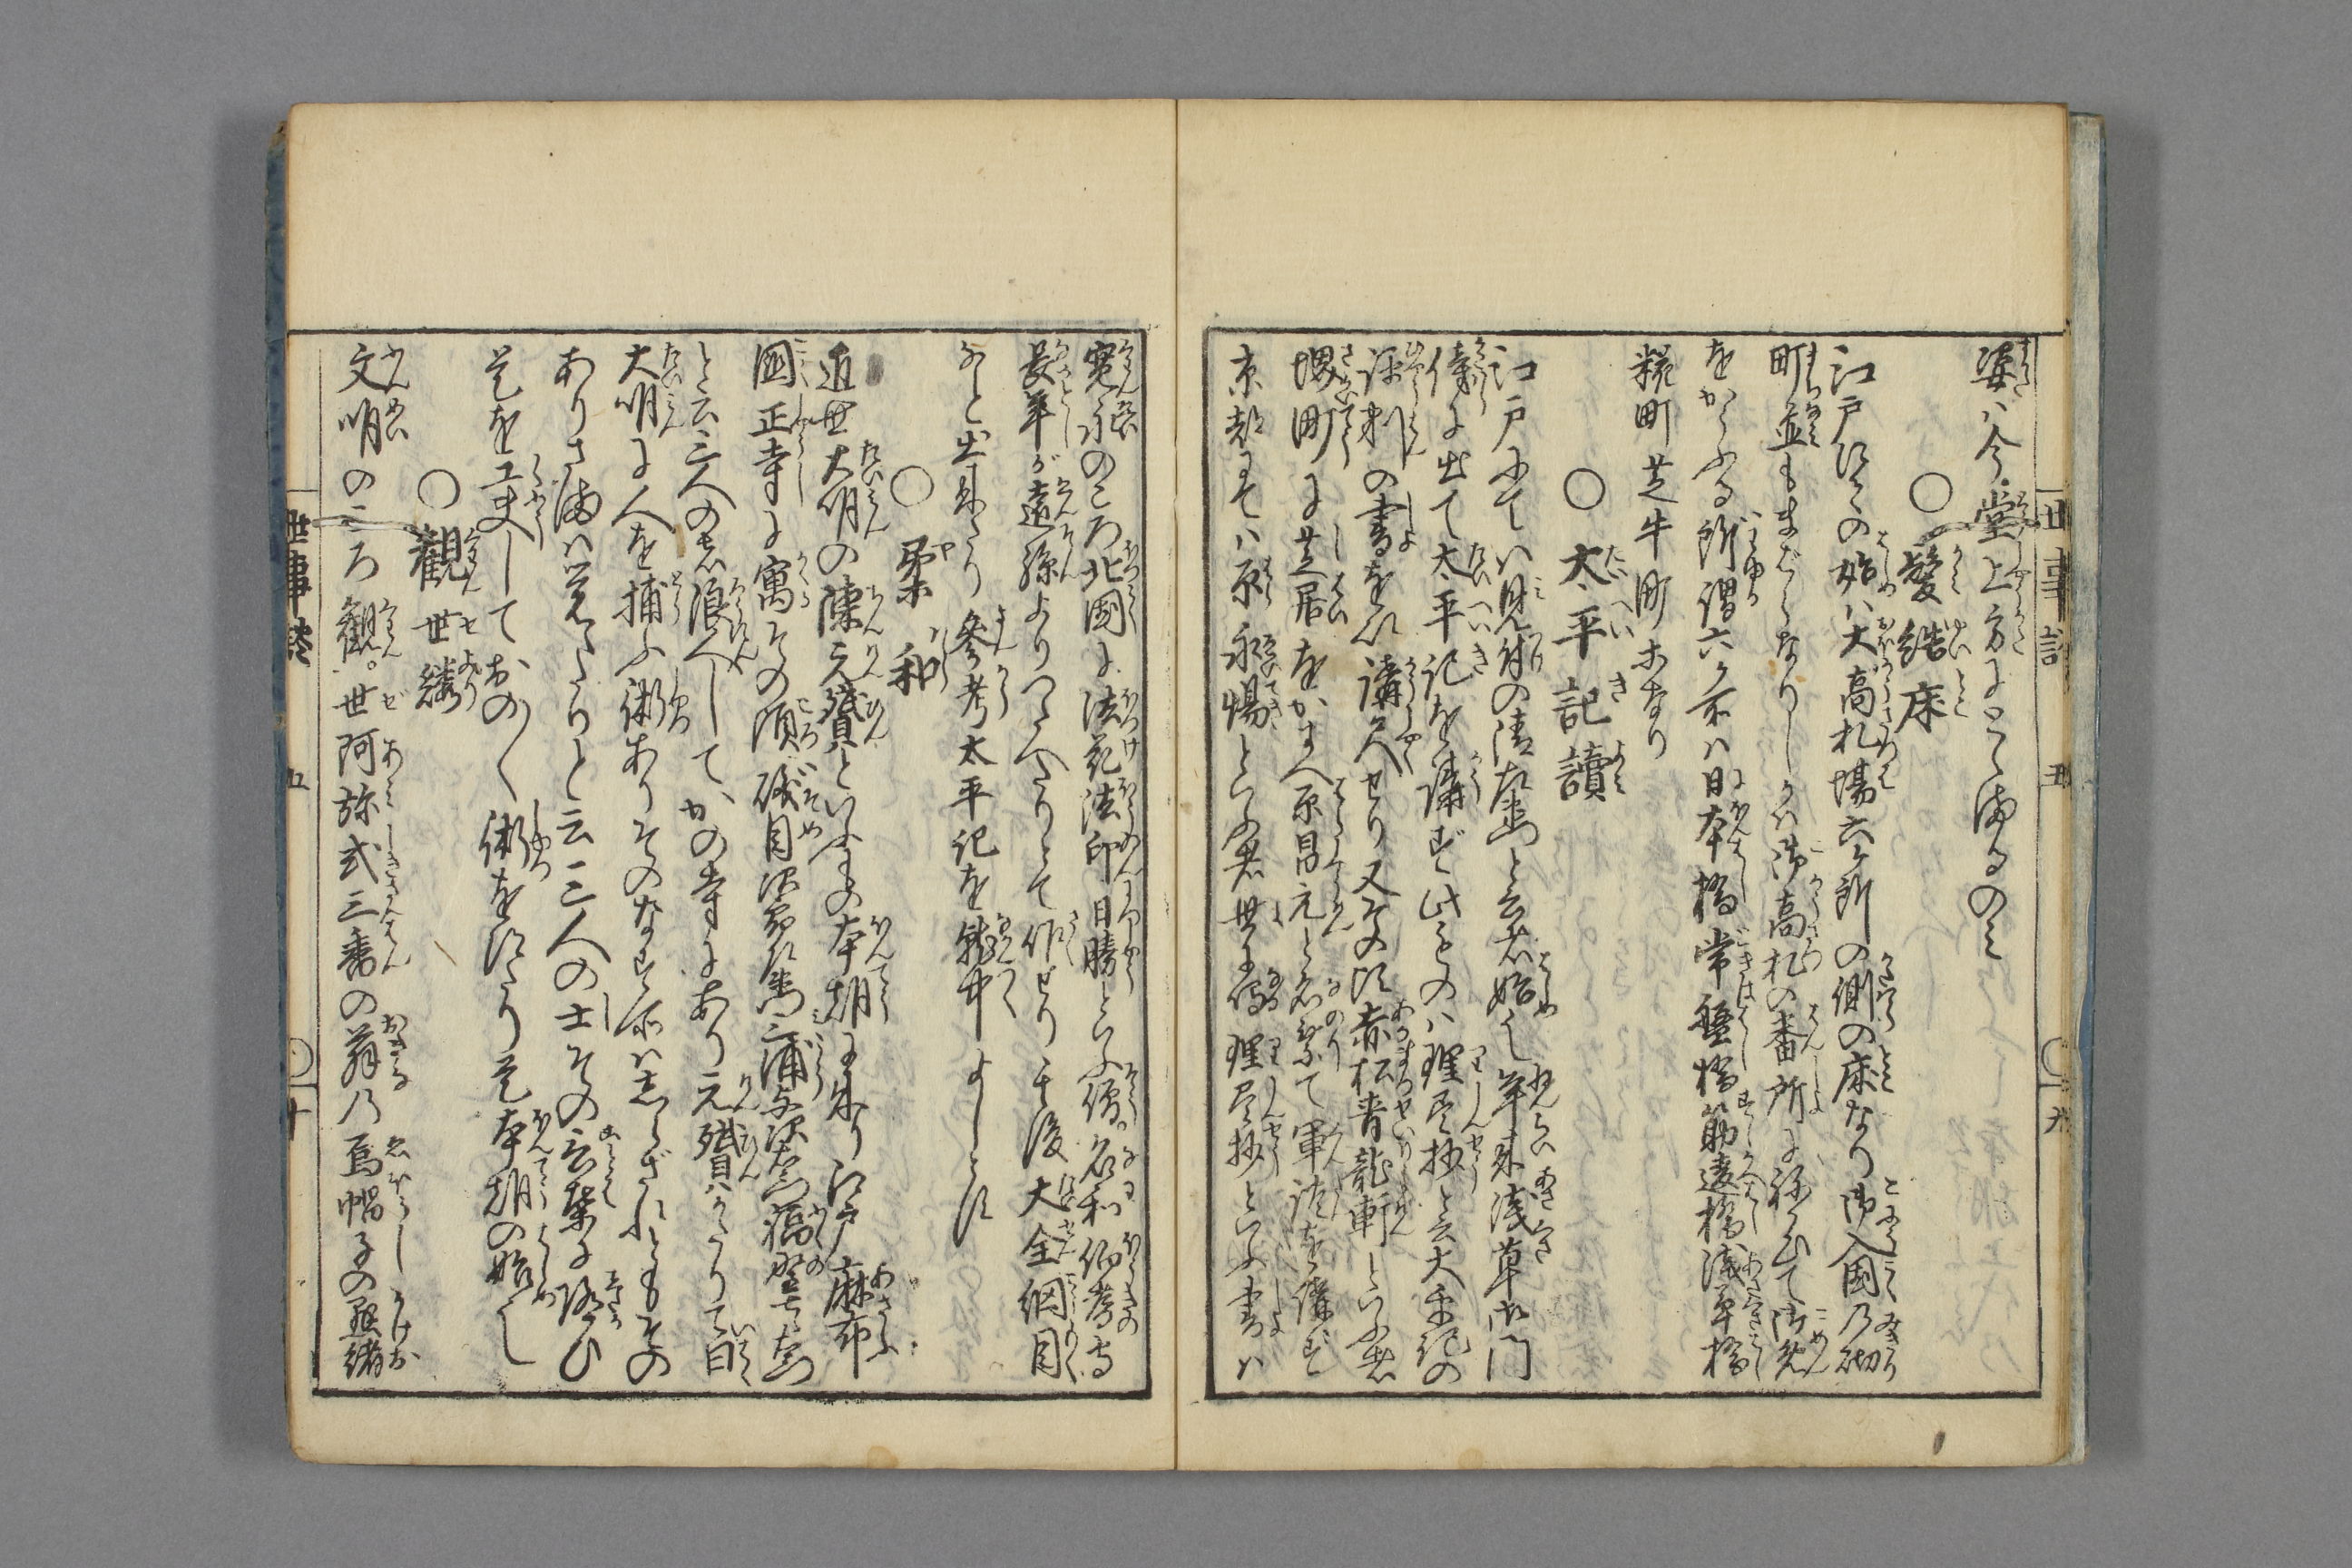 姿ハ今堂上方にとゞまるのミ
○髪結床
江戸にての始ハ大高札場六ヶ所の側の床なり御入国乃砌
町並もまばらなりしかバ御高札の番所に御免
をかうふる所謂六ヶ所ハ日本橋常盤橋筋違橋浅草橋
糀町芝牛町ホなり
○太平記讀
江戸にてハ見付の清左衛門と云者始也年来浅草御門
傍に出て太平記を講ず此ものハ理尽抄と云太平記の
評判の書を以講尺せり又その比赤松青龍軒といふ者
堺町に芝居をかまへ原昌元と名乗て軍談を講ず
京都にてハ原永惕といふ者世に鳴理尽抄といふ書ハ
寛永のころ北国に法花法印日勝といふ僧名和伯耆守
長年が遠孫よりつたへたりとて作せり其後大全綱目
など出来たり参考太平記を就中よしとす
○柔和
近世大明の陳元贇といふもの本朝に来り江戸麻布
國正寺に寓その頃礒貝次郎左衛門三浦与次右衛門福野七郎右衛門
と云三人の者浪人してかの寺にあり元贇かたりて曰
大明に人を捕ふ術ありそのなす所ハしらざれどもその
ありさまハ覚たりと云三人の士その言葉に随ひ
是を工夫しておの〳〵術を得たり是本朝の始也
○觀世縷
文明のころ觀世阿弥式三番の翁乃烏帽子の懸緒
世事談 五 ○九
世事談 五 ○十